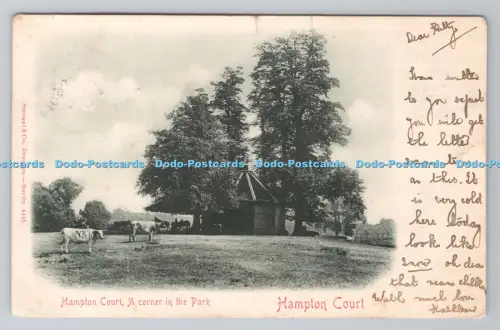 Dear Kitty
I have written
to you expect
you will get
the letter
to
as this. It
is very cold
here today
look like
snow oh dear
that means
With much love
Stengel & Co., Dresden-Berlin
Dodo-Postcards Dodo-Postcards Dodo-Postcards Dodo-Postcards Dodo-Postcards
Hampton Court, A corner in the Park
Hampton Court